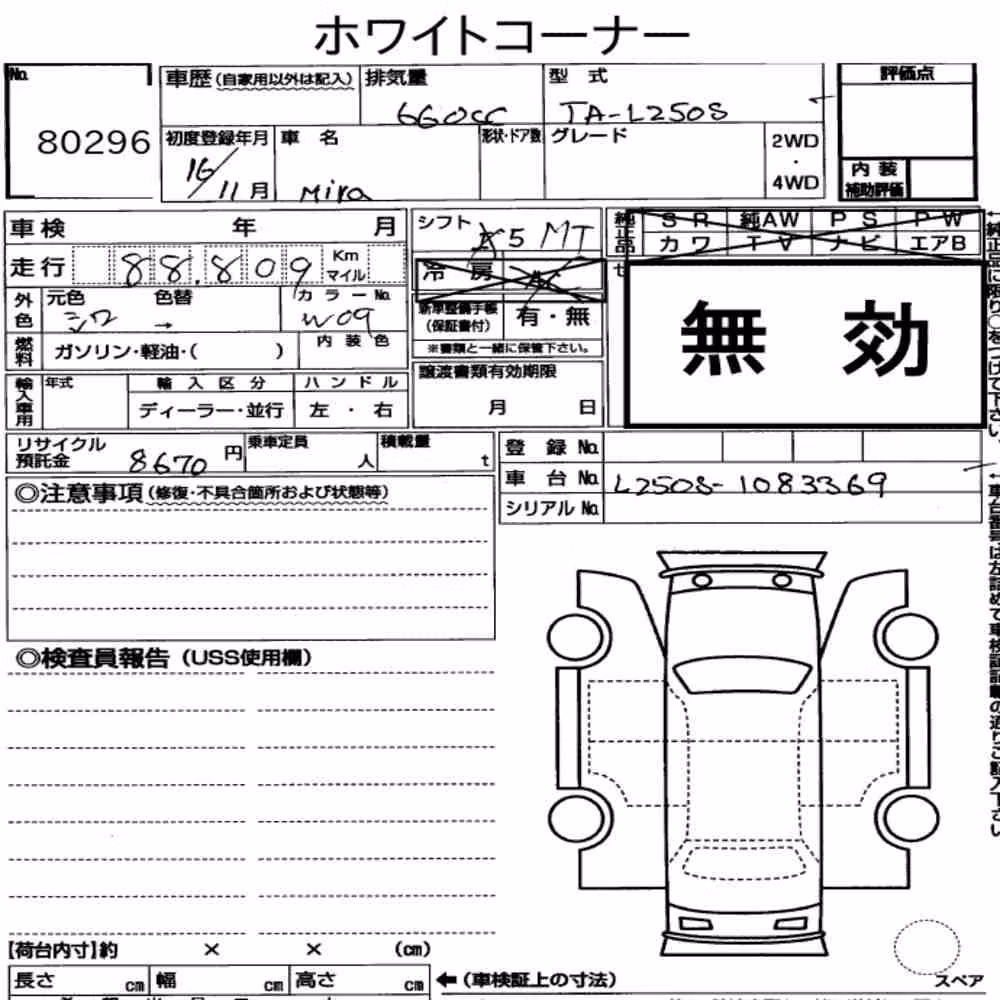 ホワイトコーナー
No.
80296
車歴(自家用以外は記入)
排気量
660cc
型式
TA-L250S
評価点
初度登録年月
16/11月
車名
Mira
形状・ドア数
グレード
2WD
・
4WD
内装
補助評価
車検 年 月
走行 88.809 Km
マイル
シフト
5 MT
冷房
AC
純正品
SR 純AW PS PW
カワ TV ナビ エアB
無効
外色
元色
シロ
色替
→
カラーNo.
W09
新車整備手帳
(保証書付)
有・無
※書類と一緒に保管下さい。
燃料
ガソリン・軽油・( )
内装色
輸入車用
年式
輸入区分
ディーラー・並行
ハンドル
左・右
譲渡書類有効期限
月 日
リサイクル
預託金
8670円
乗車定員
人
積載量
t
登録No.
車台No. L250S-1083369
シリアルNo.
◎注意事項(修復・不具合箇所および状態等)
◎検査員報告(USS使用欄)
【荷台内寸】約 × × (cm)
長さ cm 幅 cm 高さ cm
←(車検証上の寸法)
スペア